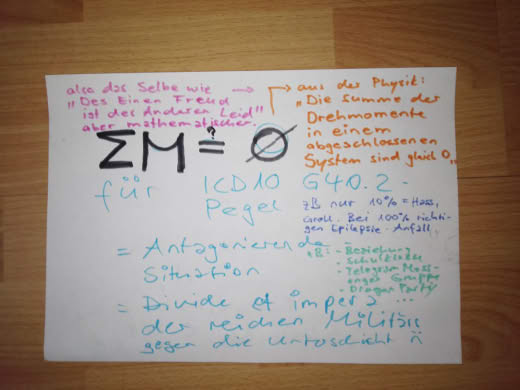 also das Selbe wie →
„Des Einen Freud
ist des Anderen Leid"
aber mathematischer.
→ aus der Physik:
„Die Summe der
Drehmomente
in einem
abgeschlossenen
System sind gleich 0„
ΣM ?= Ø
für ICD10 G40.2 -
Pegel
zB nur 10% = Hass,
Groll. Bei 100% richti-
gen Epilepsie-Anfall,
= Antagonierende
Situation
zB: - Beziehung
- Schulklasse
- Telegram Mess-
enger Gruppe
- Drogen Party
= Divide et impera ...
der reichen Militärs
gegen die Unterschicht